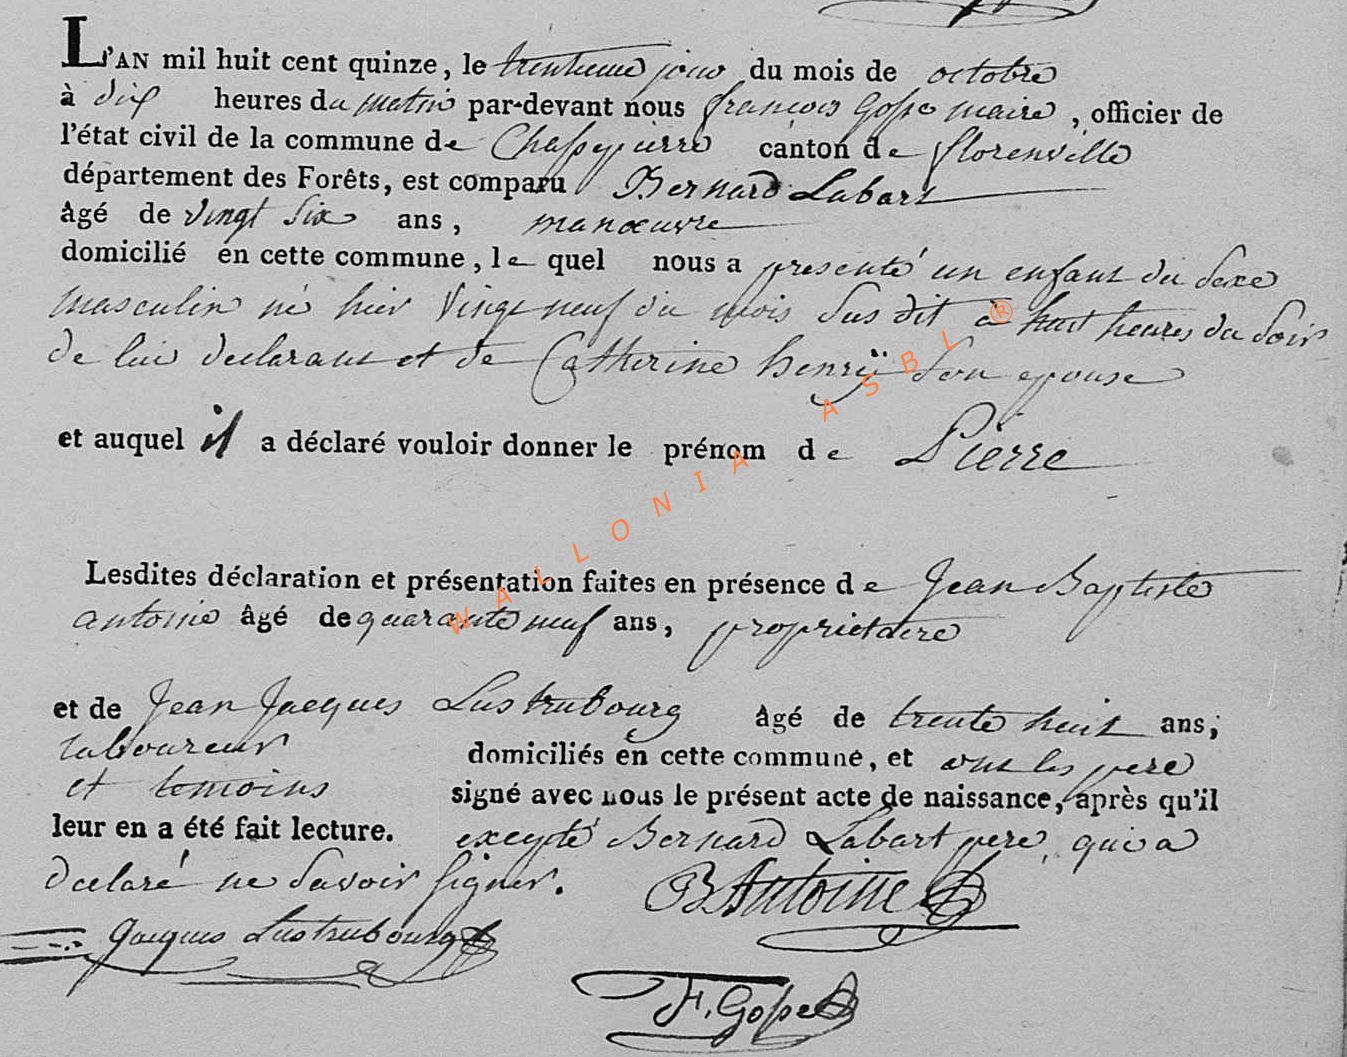 L'AN mil huit cent quinze, le trentieme jour du mois de octobre
à dix heures du matin par-devant nous françois Gosse maire, officier de
l'état civil de la commune de Chassepierre canton de florenville
département des Forêts, est comparu Bernard Labart
âgé de vingt six ans, manœuvre
domicilié en cette commune, le quel nous a presenté un enfant du sexe
masculin né hier vingt neuf du mois susdit à huit heures du soir
de lui declarant et de Catherine henrÿ son epouse
et auquel il a déclaré vouloir donner le prénom de Pierre
Lesdites déclaration et présentation faites en présence de Jean Baptiste
antoine âgé de quarante neuf ans, proprietaire
et de Jean Jacques Lustrubourg âgé de trente huit ans,
laboureur domiciliés en cette commune, et ont les pere
et temoins signé avec nous le présent acte de naissance, après qu'il
leur en a été fait lecture. excepté Bernard Labart pere, qui a
declaré ne savoir signer. B Antoine
Jacques Lustrubourg
F. Gosse
WALLONIA ASBL ®